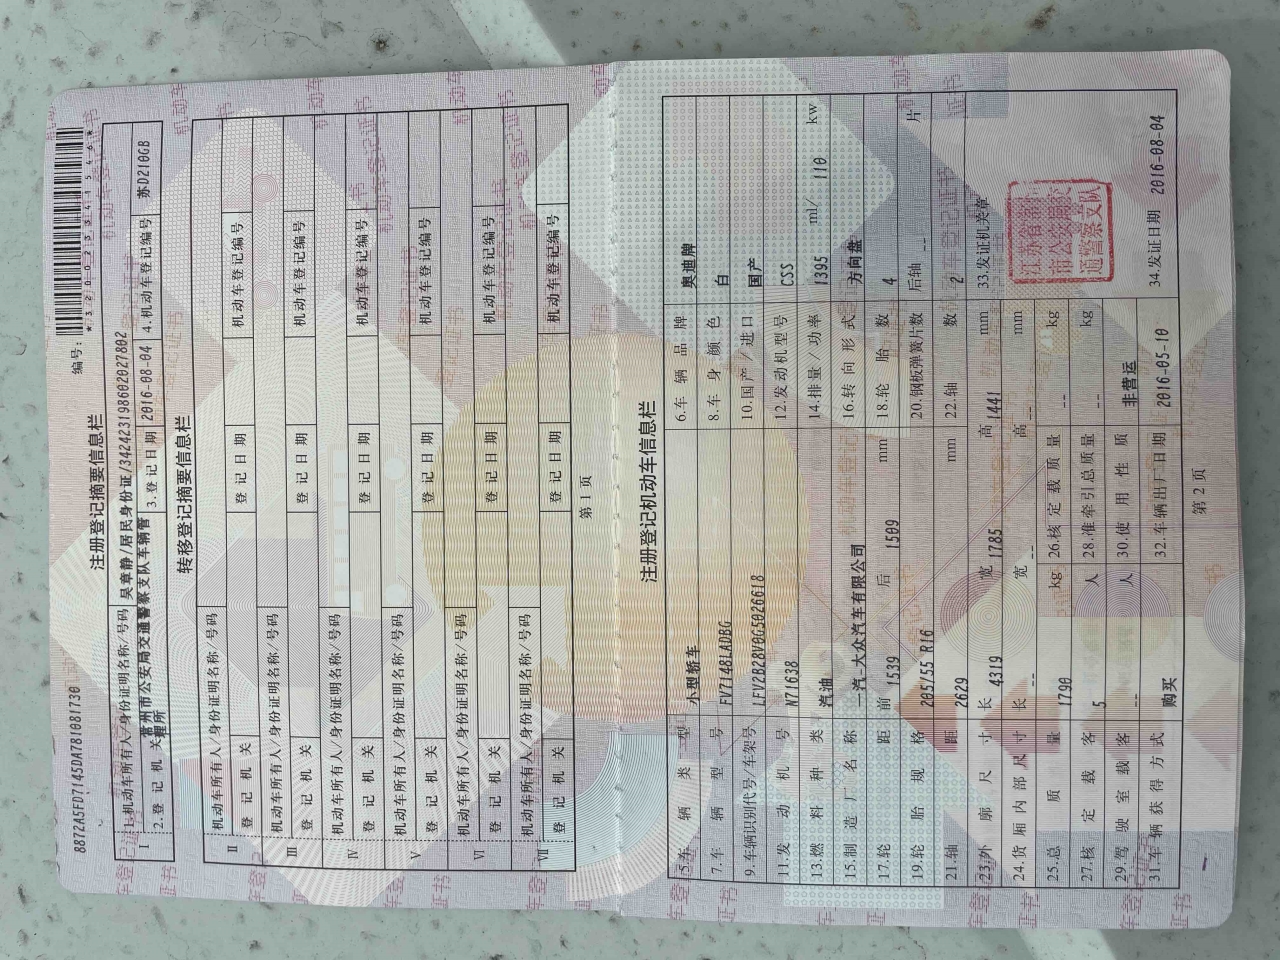 8872A5FD7145DA781081730
注册登记摘要信息栏
编号:
*320023341546*
I 1.机动车所有人/身份证明名称/号码 吴章静/居民身份证/342423198602027802
2.登记机关 常州市公安局交通警察支队车辆管理所 3.登记日期 2016-08-04 4.机动车登记编号 苏D210GB
转移登记摘要信息栏
II 机动车所有人/身份证明名称/号码
登记机关 登记日期 机动车登记编号
III 机动车所有人/身份证明名称/号码
登记机关 登记日期 机动车登记编号
IV 机动车所有人/身份证明名称/号码
登记机关 登记日期 机动车登记编号
V 机动车所有人/身份证明名称/号码
登记机关 登记日期 机动车登记编号
VI 机动车所有人/身份证明名称/号码
登记机关 登记日期 机动车登记编号
VII 机动车所有人/身份证明名称/号码
登记机关 登记日期 机动车登记编号
第1页
注册登记机动车信息栏
5.车辆类型 小型轿车 6.车辆品牌 奥迪牌
7.车辆型号 FV7148LADBG 8.车身颜色 白
9.车辆识别代号/车架号 LFV2B28V0G5026618 10.国产/进口 国产
11.发动机号 N71638 12.发动机型号 CSS
13.燃料种类 汽油 14.排量/功率 1395 ml/ 110 kw
15.制造厂名称 一汽-大众汽车有限公司 16.转向形式 方向盘
17.轮距 前 1539 后 1599 mm 18.轮胎数 4
19.轮胎规格 205/55 R16 20.钢板弹簧片数 后轴 -- 片
21.轴距 2629 mm 22.轴数 2
23.外廓尺寸 长 4319 宽 1785 高 1441 mm
33.发证机关章
24.货厢内部尺寸 长 -- 宽 -- 高 -- mm
25.总质量 1790 kg 26.核定载质量 -- kg
27.核定载客 5 人 28.准牵引总质量 -- kg
29.驾驶室载客 -- 人 30.使用性质 非营运
31.车辆获得方式 购买 32.车辆出厂日期 2016-05-10 34.发证日期 2016-08-04
第2页